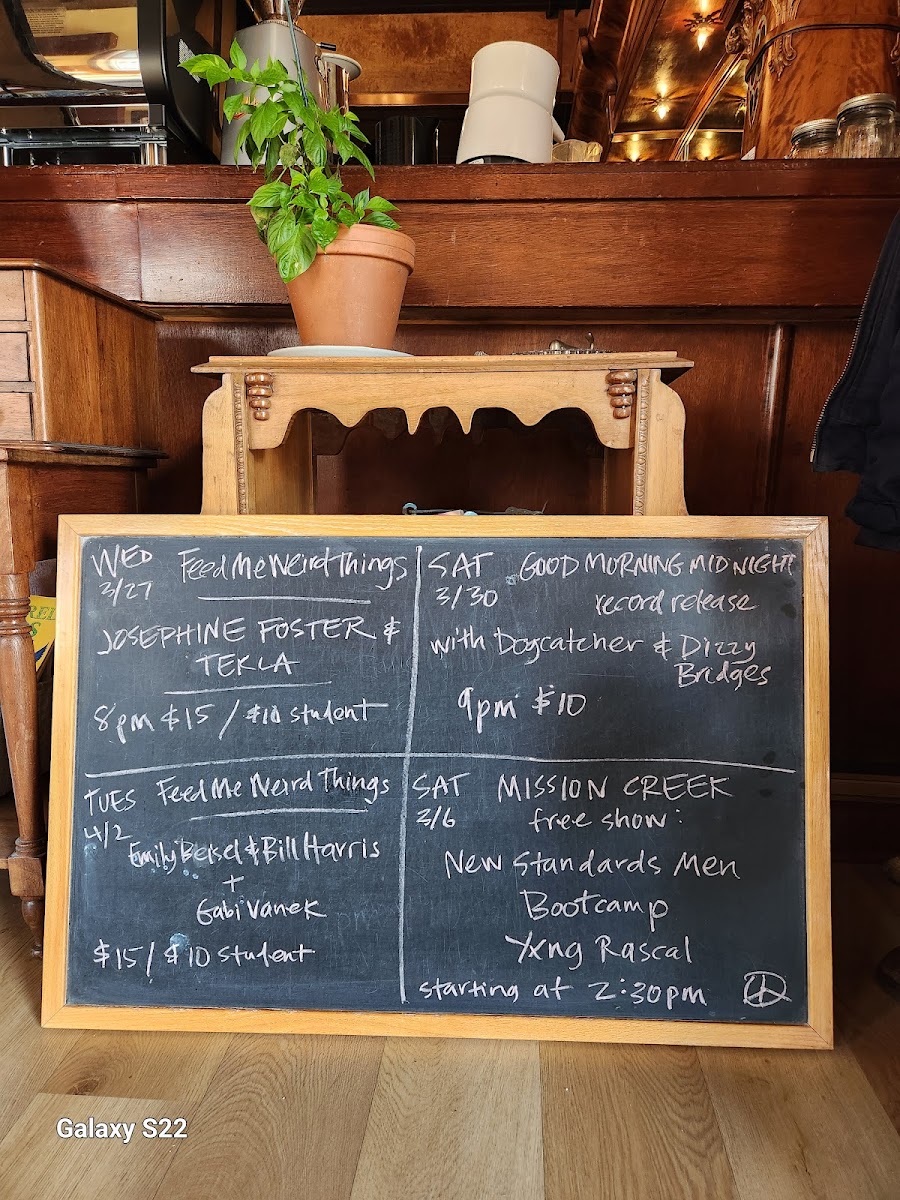 WED Feed Me Weird Things
3/27
JOSEPHINE FOSTER &
TEKLA
8pm $15 / $10 student
SAT GOOD MORNING MIDNIGHT
3/30 record release
with Dogcatcher & Dizzy
Bridges
9pm $10
TUES Feed Me Weird Things
4/2
Emily Beisel & Bill Harris
+
Gabi Vanek
$15 / $10 student
SAT MISSION CREEK
3/6 free show:
New Standards Men
Bootcamp
Yxng Rascal
starting at 2:30pm
Galaxy S22